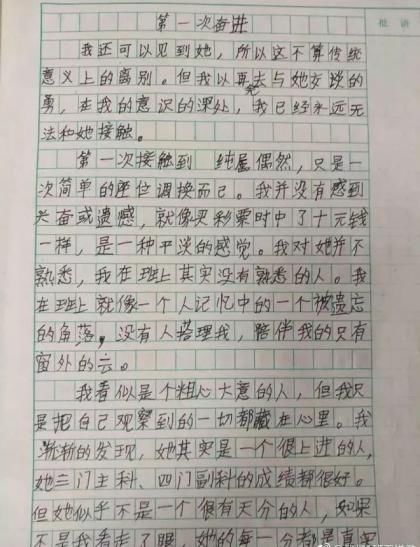 批语
第一次奋进
我还可以见到她，所以这不算传统
意义上的离别。但我以再无去与她交谈的
勇，在我的意识的深处，我已经永远无
法和她接触。
第一次接触到 纯属偶然，只是一
次简单的座位调换而已。我并没有感到
兴奋或遗憾，就像买彩票时中了十元钱
一样，是一种平淡的感觉。我对她并不
熟悉，我在班上其实没有熟悉的人。我
在班上就像一个人记忆中的一个被遗忘
的角落，没有人搭理我，陪伴我的只有
窗外的云。
我看似是个粗心大意的人，但我只
是把自己观察到的一切都藏在心里。我
渐渐的发现，她其实是一个很上进的人，
她三门主科、四门副科的成绩都很好。
但她似乎不是一个很有天分的人，如果
不是我看走了眼，她的每一分都是真实